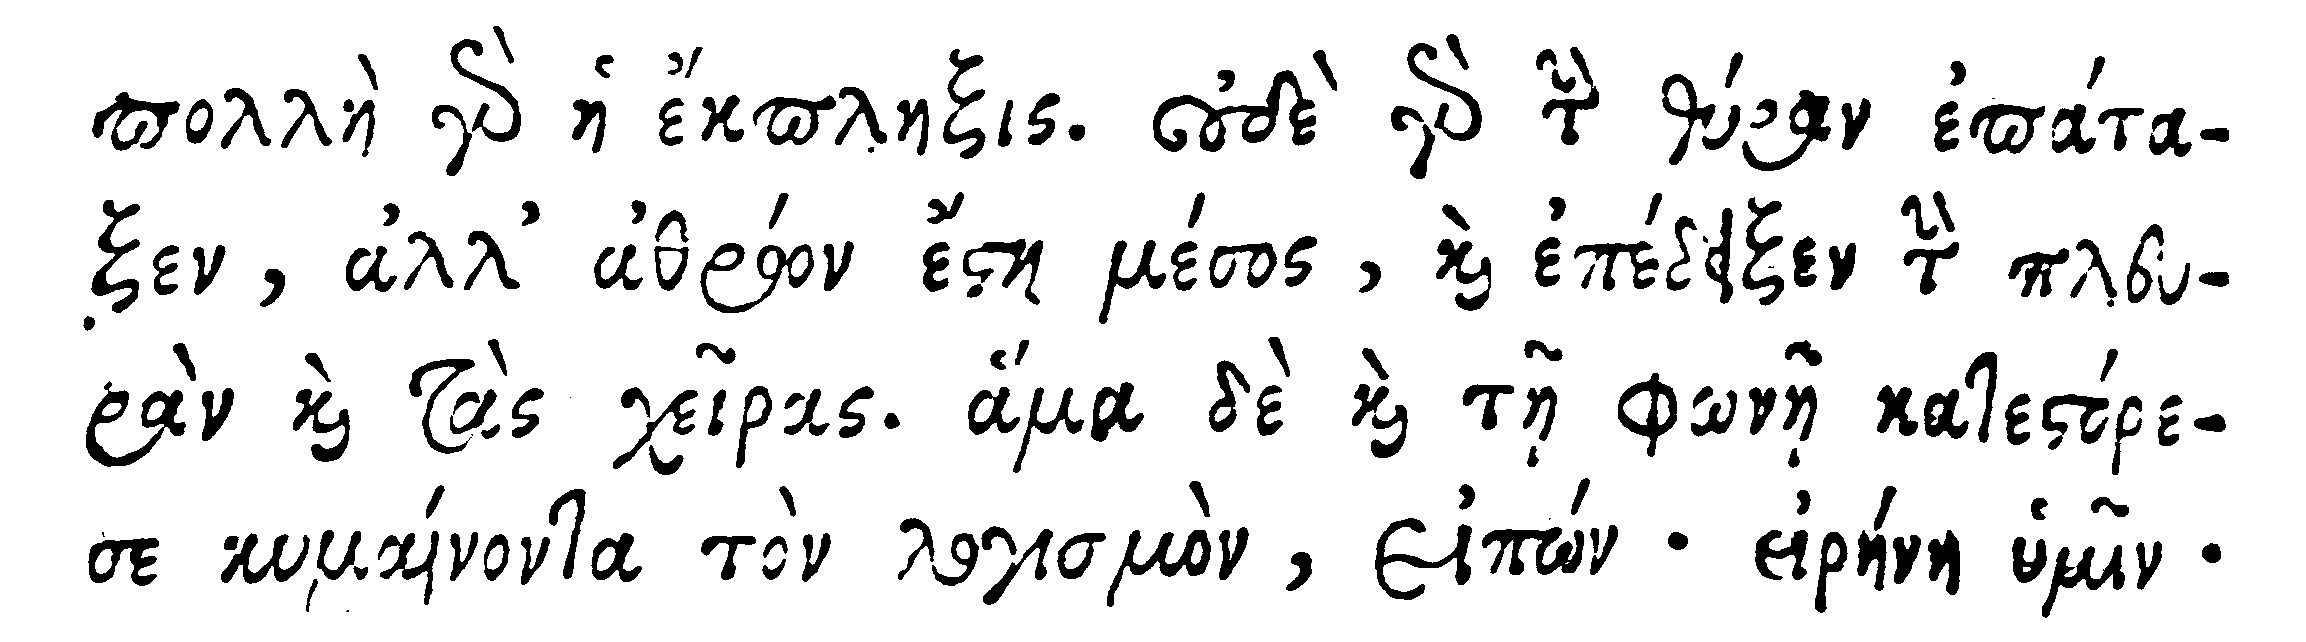 πολλὴ γὰρ ἡ ἔκπληξις. οὐδὲ γὰρ τὴν θύραν ἐπάτα-
ξεν, ἀλλ' ἀθρόον ἔστη μέσος, καὶ ἐπέδειξεν τὴν πλευ-
ρὰν καὶ τὰς χεῖρας. ἅμα δὲ καὶ τῇ φωνῇ κατεστόρε-
σε κυμαίνοντα τὸν λογισμὸν, εἰπών · εἰρήνη ὑμῖν ·